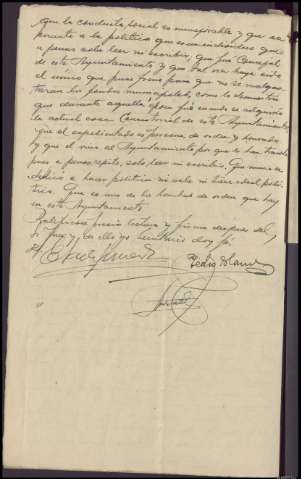 que la conducta social es inmejorable y que res
pecto a la politica que es un ciudadano que
a penas sabe leer ni escribir, que fue Concejal
de este Ayuntamiento y que tal vez haya sido
el unico que puso pena para que no se malgas
taran los fondos municipales, como lo demuestra
que durante aquella epoca fue cuando se adquirio
la actual casa Consistorial de este Ayuntamiento,
que el expedientado es persona de orden y honrado
y que si vino al Ayuntamiento por que le han traido
pues a penas, repito, sabe leer ni escribir. Que nunca se
dedicó a hacer politica ni este ni tiene ideal poli
tico. Que es uno de los hombres de orden que hay
en este Ayuntamiento
Ratificase previa lectura y firma despues del
Sr Juez y de ello yo Secretario doy fe
Pedro Blanco